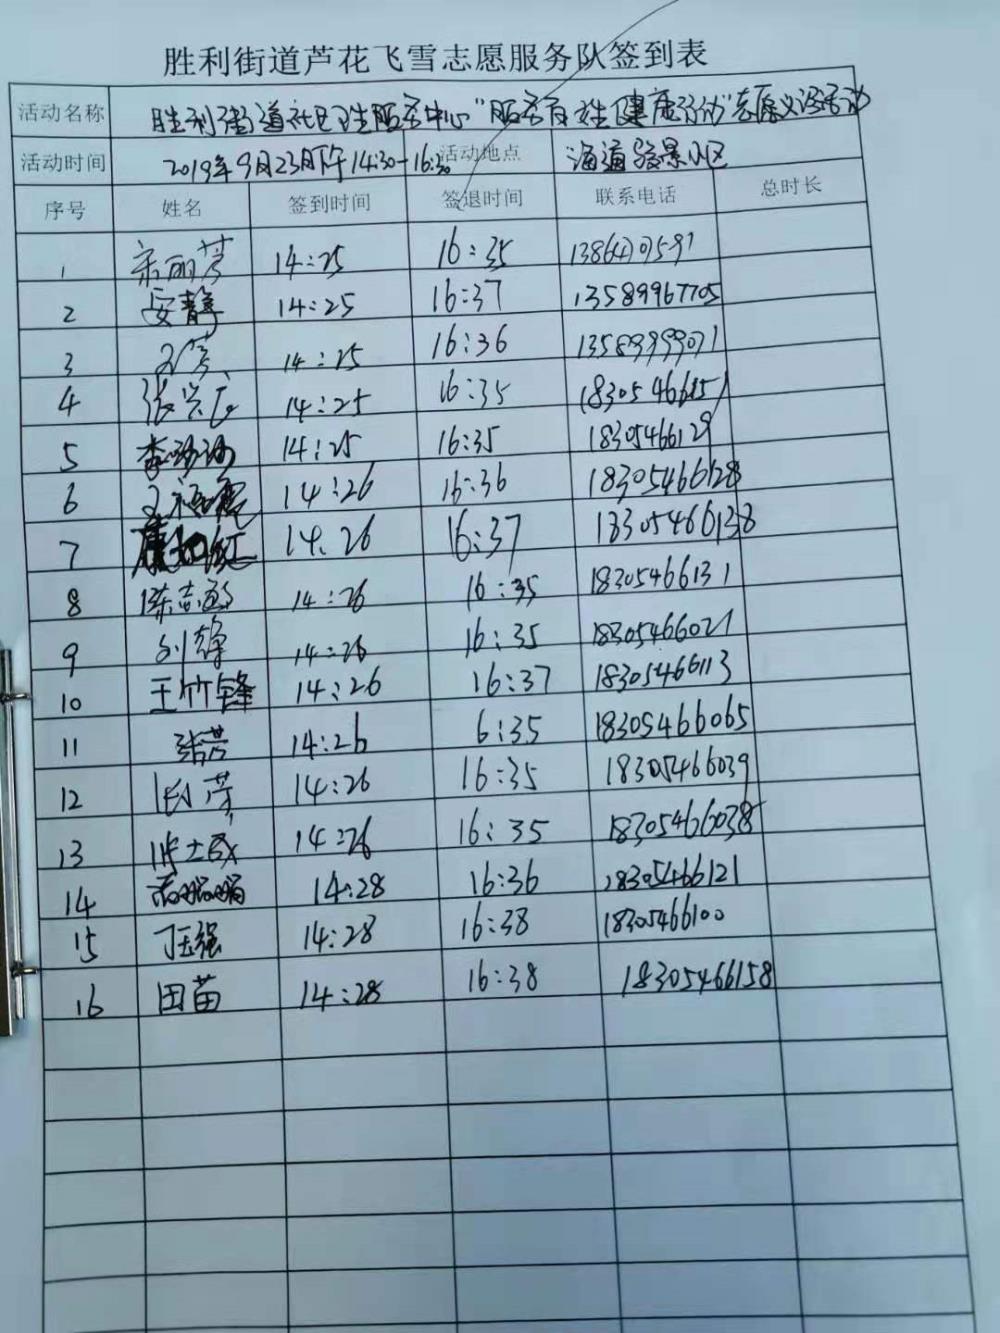 胜利街道芦花飞雪志愿服务队签到表
活动名称 胜利街道社区卫生服务中心"服务百姓健康行动"志愿义诊活动
活动时间 2019年9月23日下午14:30-16:30 活动地点 海通骏景小区
序号 姓名 签到时间 签退时间 联系电话 总时长
1 宋丽芳 14:25 16:35
2 安静 14:25 16:37 13589967705
3 14:25 16:36 13589999071
4 张兴 14:25 16:35
5 李 14:25 16:35 18305466129
6 14:26 16:36 18305466128
7 14:26 16:37 18305466138
8 陈志 14:26 16:35 18305466131
9 刘静 14:26 16:35 18305466021
10 王竹锋 14:26 16:37 18305466113
11 14:26 6:35 18305466065
12 14:26 16:35 18305466039
13 14:26 16:35 18305466038
14 14:28 16:36 18305466121
15 丁玉强 14:28 16:38 18305466100
16 田苗 14:28 16:38 18305466158